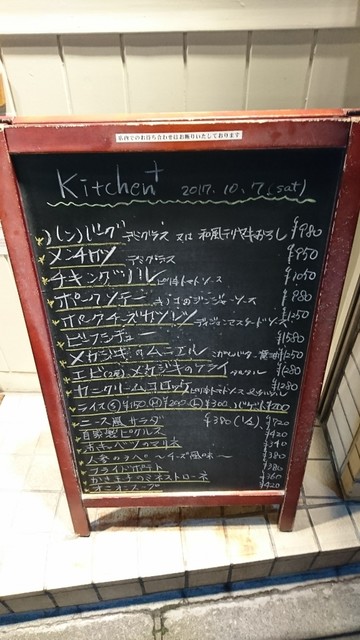 店内でのお待ち合わせはお断りいたしております
Kitchen+ 2017.10.7.(sat)
ハンバーグ デミグラス 又は 和風テリヤキおろし ¥980
メンチカツ デミグラス ¥950
チキングリル ピリ辛トマトソース ¥1050
ポークソテー キノコのジンジャーソース ¥980
ポークチーズカツレツ ディジョンマスタードソース ¥1250
ビーフシチュー ¥1580
メカジキのムニエル こがしバター醤油 ¥1250
エビ(2尾)メカジキのフライ タルタル ¥1280
カニクリームコロッケ ピリ辛トマトソース ¥1280
ライス(S)¥150 (M)¥200 (L)¥300 バゲット ¥200
ニース風サラダ ¥380(1/2)、¥720
自家製ピクルス ¥420
キャベツのマリネ ¥340
人参のラペ ～チーズ風味～ ¥380
フライドポテト ¥380
かきとキノコのミネストローネ ¥360
オニオンスープ ¥420